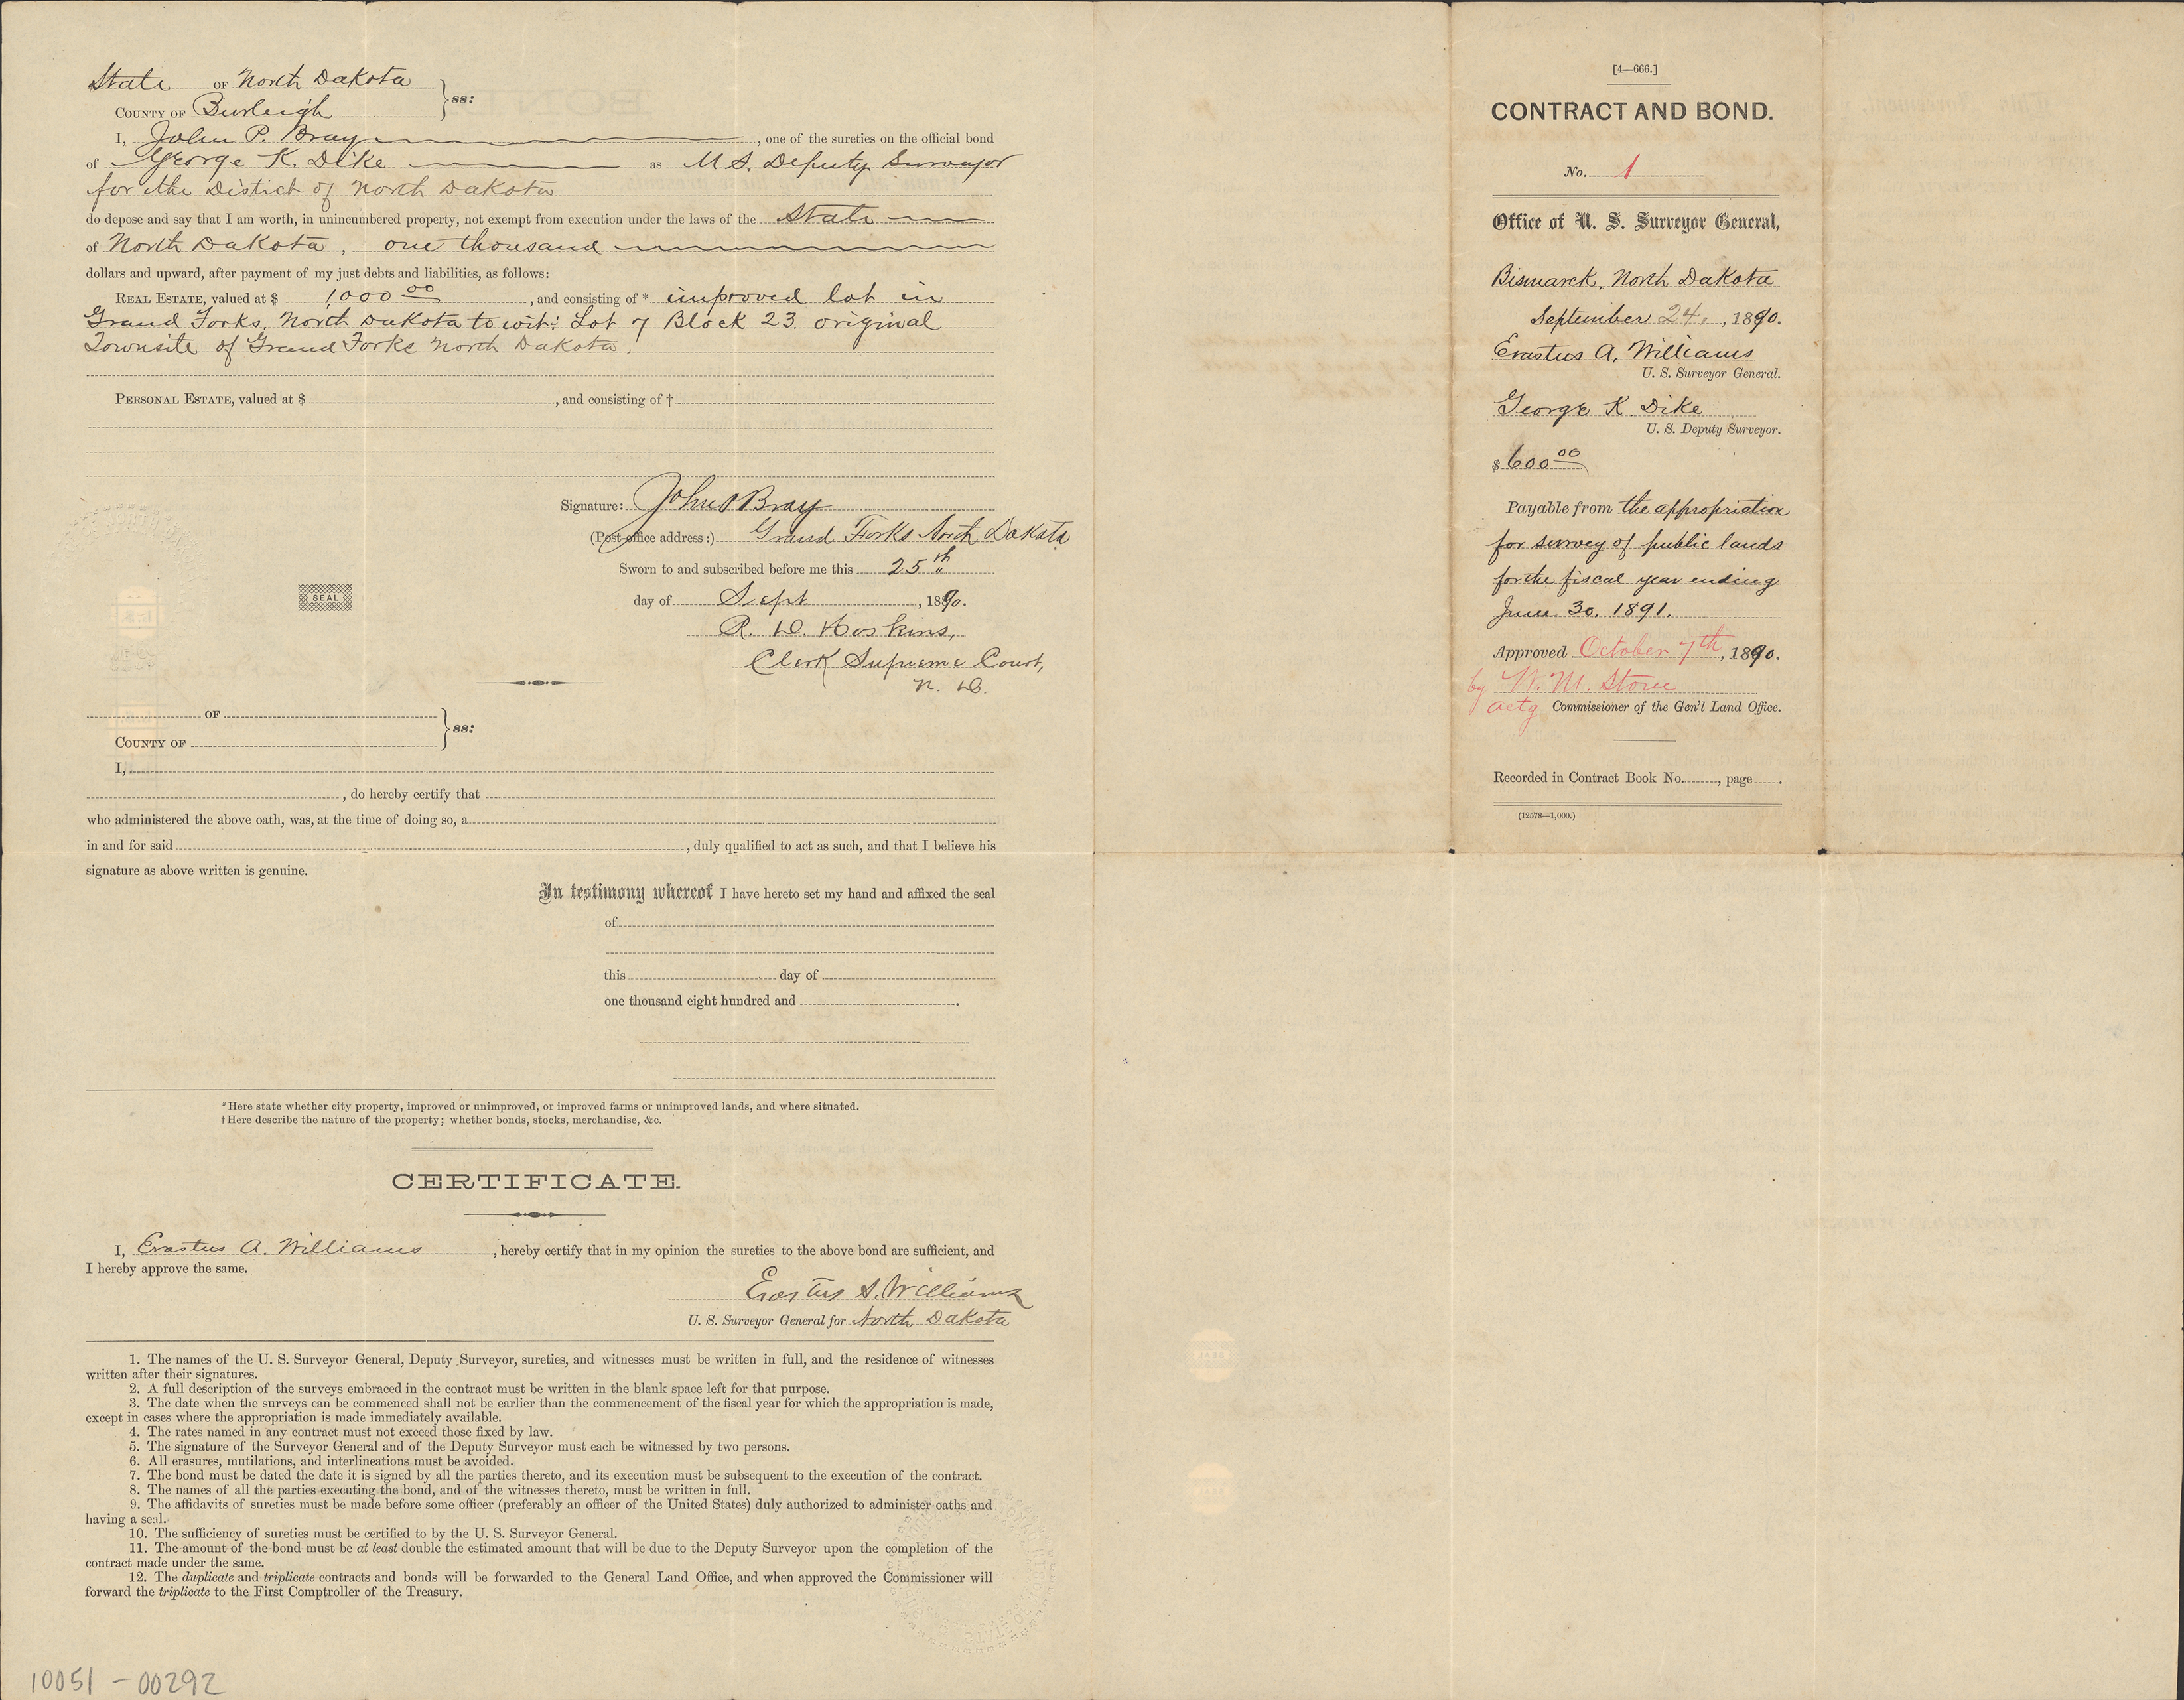 State OF North Dakota
COUNTY OF Burleigh } ss:
I, John P. Bray, one of the sureties on the official bond
of George K. Dike as U.S. Deputy Surveyor
for the Distict of North Dakota
do depose and say that I am worth, in unincumbered property, not exempt from execution under the laws of the State
of North Dakota, one thousand
dollars and upward, after payment of my just debts and liabilities, as follows:
REAL ESTATE, valued at $ 1,000 00, and consisting of * improved lot in
Grand Forks, North Dakota to wit: Lot 7 Block 23 original
Townsite of Grand Forks North Dakota.
PERSONAL ESTATE, valued at $ , and consisting of †
Signature: John P Bray
(Post-office address:) Grand Forks North Dakota
Sworn to and subscribed before me this 25th
SEAL
day of Sept, 1890.
R. D. Hoskins,
Clerk Supreme Court,
N. D.
OF
COUNTY OF } ss:
I,
, do hereby certify that
who administered the above oath, was, at the time of doing so, a
in and for said , duly qualified to act as such, and that I believe his
signature as above written is genuine.
In testimony whereof I have hereto set my hand and affixed the seal
of
this day of
one thousand eight hundred and .
* Here state whether city property, improved or unimproved, or improved farms or unimproved lands, and where situated.
† Here describe the nature of the property; whether bonds, stocks, merchandise, &c.
CERTIFICATE.
I, Erastus A. Williams, hereby certify that in my opinion the sureties to the above bond are sufficient, and
I hereby approve the same.
Erastus A. Williams
U. S. Surveyor General for North Dakota
1. The names of the U. S. Surveyor General, Deputy Surveyor, sureties, and witnesses must be written in full, and the residence of witnesses
written after their signatures.
2. A full description of the surveys embraced in the contract must be written in the blank space left for that purpose.
3. The date when the surveys can be commenced shall not be earlier than the commencement of the fiscal year for which the appropriation is made,
except in cases where the appropriation is made immediately available.
4. The rates named in any contract must not exceed those fixed by law.
5. The signature of the Surveyor General and of the Deputy Surveyor must each be witnessed by two persons.
6. All erasures, mutilations, and interlineations must be avoided.
7. The bond must be dated the date it is signed by all the parties thereto, and its execution must be subsequent to the execution of the contract.
8. The names of all the parties executing the bond, and of the witnesses thereto, must be written in full.
9. The affidavits of sureties must be made before some officer (preferably an officer of the United States) duly authorized to administer oaths and
having a seal.
10. The sufficiency of sureties must be certified to by the U. S. Surveyor General.
11. The amount of the bond must be at least double the estimated amount that will be due to the Deputy Surveyor upon the completion of the
contract made under the same.
12. The duplicate and triplicate contracts and bonds will be forwarded to the General Land Office, and when approved the Commissioner will
forward the triplicate to the First Comptroller of the Treasury.
10051-00292
[4—666.]
CONTRACT AND BOND.
No. 1
Office of U. S. Surveyor General,
Bismarck, North Dakota
September 24, 1890.
Erastus A. Williams
U. S. Surveyor General.
George K. Dike
U. S. Deputy Surveyor.
$600 00
Payable from the appropriation
for survey of public lands
for the fiscal year ending
June 30, 1891.
Approved October 7th, 1890.
by W. M. Stone
actg Commissioner of the Gen'l Land Office.
Recorded in Contract Book No. , page .
(12578—1,000.)